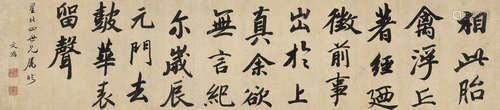 相此胎
禽浮丘
著經迺
徵前事
出於上
真余欲
無言紀
尔歲辰
元門去
鼓華表
留聲
四世兄屬
文治